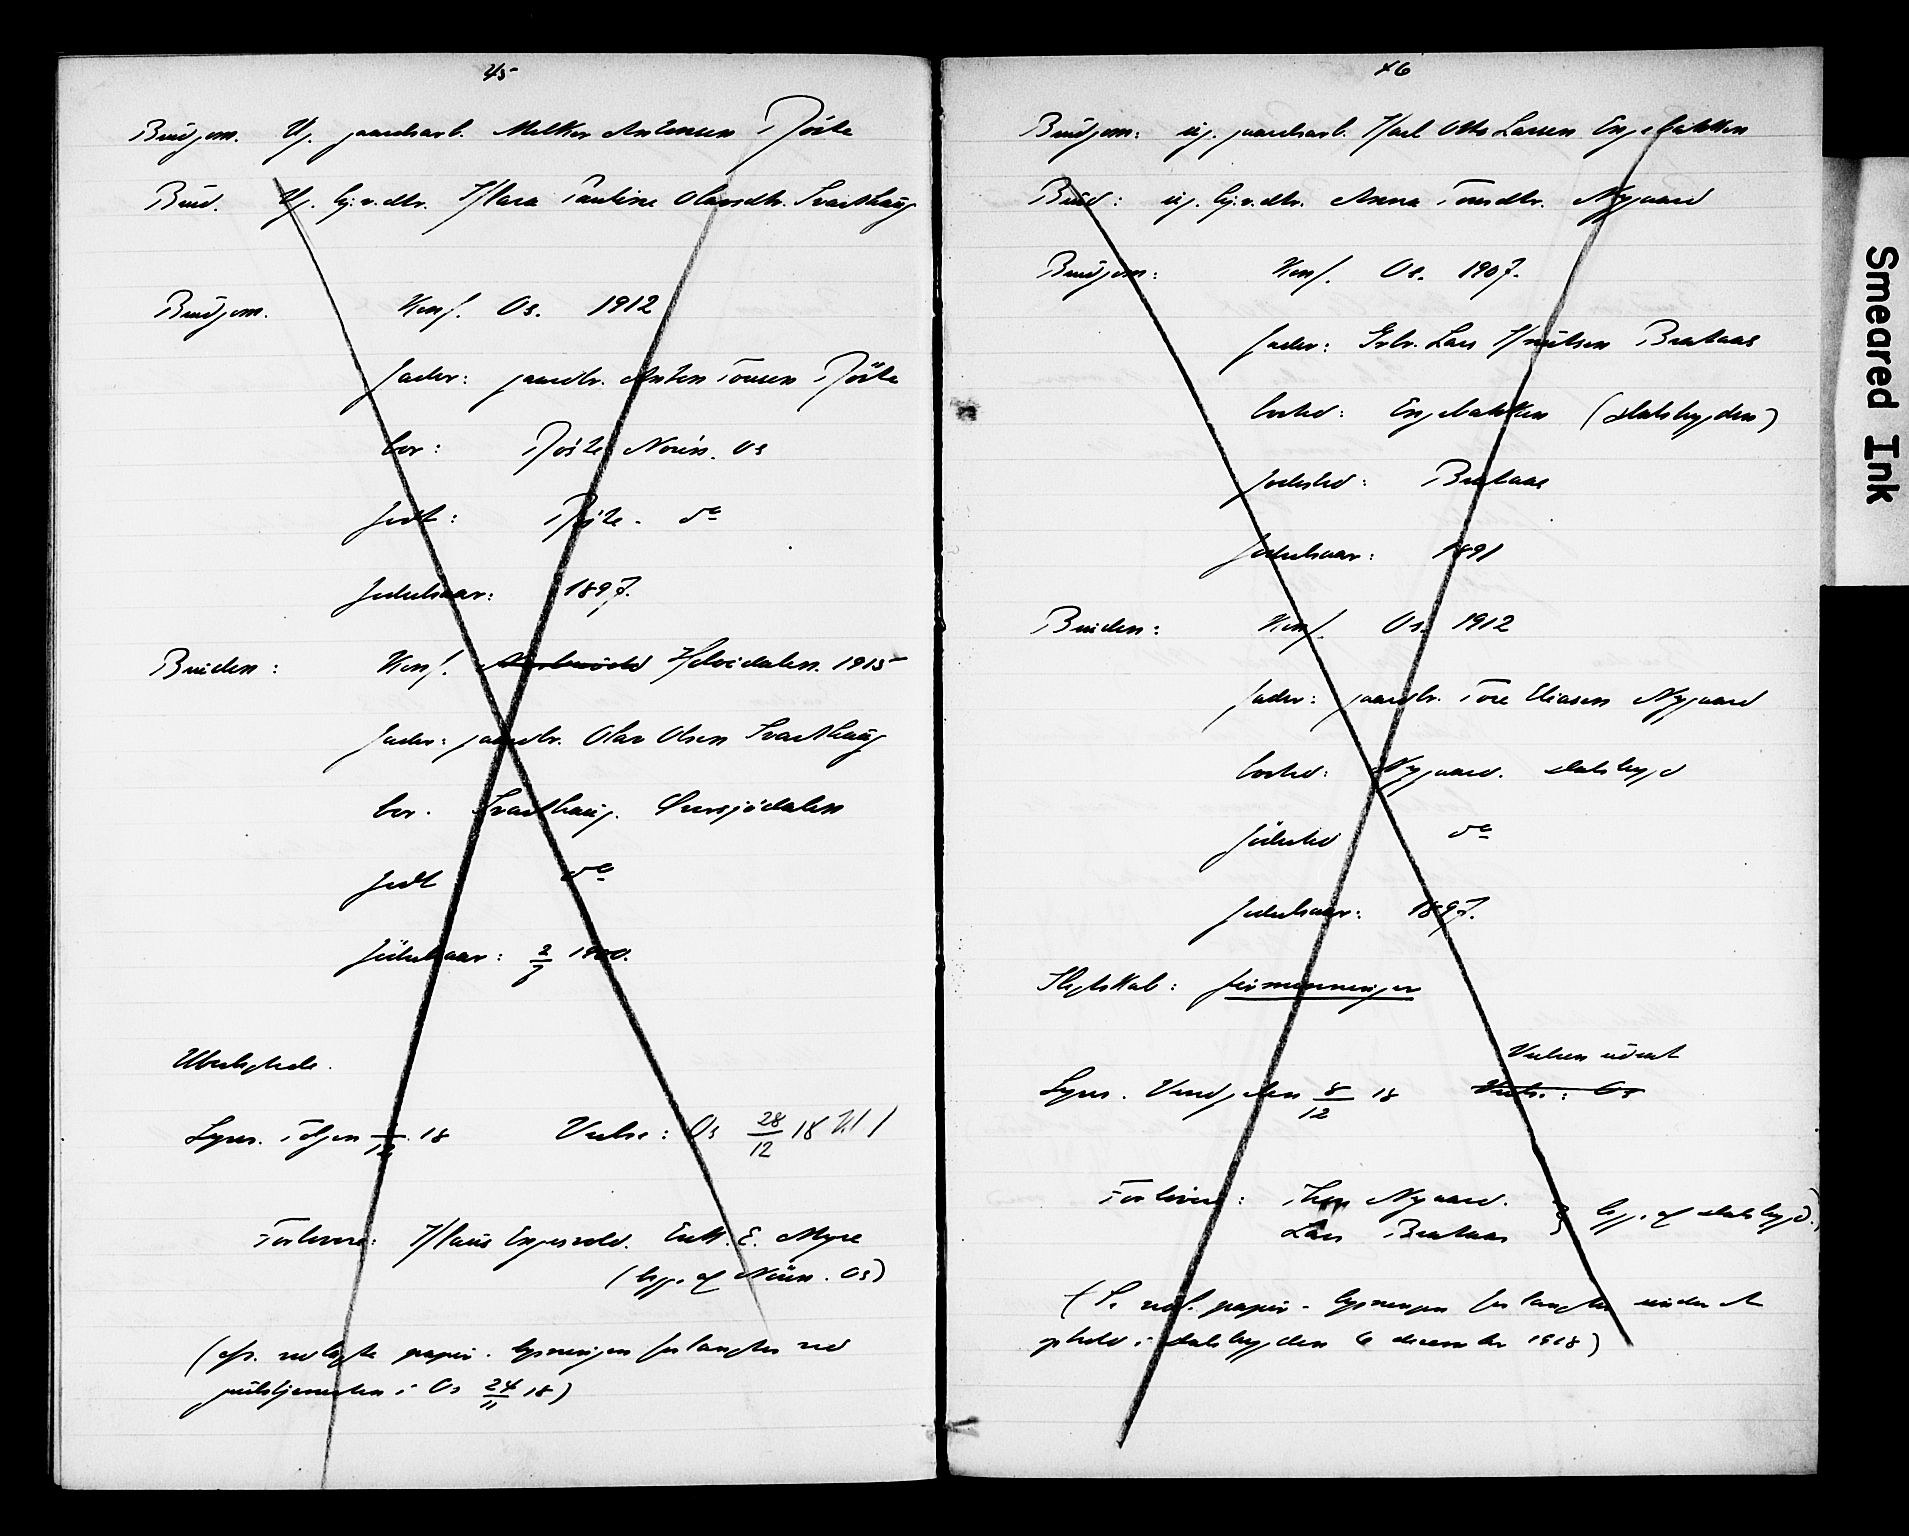 45
Brudgom. Ug. gaardsarb. Melkor Antonsen Røste
Brud. Ug. hj.v.dtr. Klara Pauline Olavsdtr. Svarthaug
Brudgom. Konf. Os. 1912
fader: gaardbr. Anton Tonsen Røste
bor: Røste Noren. Os
født: Røste. do
fødselsaar: 1897.
Bruden: Konf. Holøidalen. 1915
fader: gaardbr. Olav Olsen Svarthaug
bor. Svarthaug. Øversjødalen
født do
fødselsaar: 2/7 1900.
Ubeslægtede.
Lysn. Tolgen /12 18 Vielse: Os 28/12 18 Kl 1
Forlovere: Klaus Engesvold. Enkm. E. Myre
(begge af Noren. Os)
(efr. vedlagte papir. lysningen forlangtes ved
gudstjenesten i Os 24/11 18)
46
Brudgom: ug. gaardsarb. Karl Otto Larsen Engebakken
Brud: ug. hj.v.dtr. Anna Toresdtr. Nygaard
Brudgom: Konf. Os. 1907.
fader: Grbr. Lars Knutsen Brataas
bosted: Engebakken (Dalsbygden)
fødested: Brataas
fødselsaar: 1891
Bruden: Konf. Os. 1912
fader: gaardbr. Tore Eliasen Nygaard
bosted: Nygaard. Dalsbygd
fødested do
fødselsaar: 1897.
Slegtskab: firmenninger
Vielsen udsat
Lysn. Vingelen 8/12 18 Viels.: Os
Forlovere: Nygaard.
Lars Brataas } begge af Dalsbygd.
(Se vedl. papir - lysningen forlangtes under et
ophold i Dalsbygden 6 december 1918)
Smeared Ink